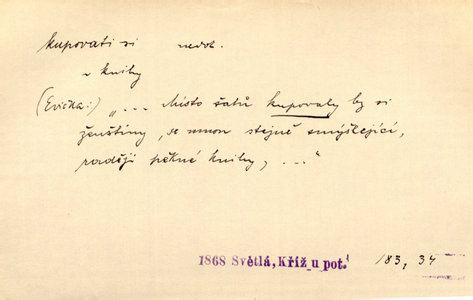 kupovati si nedok.
v knihy
(Evička:) „... Místo šatů kupovaly by si
ženštiny, se mnou stejně smýšlející,
raději pěkné knihy, ..."
1868 Světlá, Kříž u pot. 183, 34